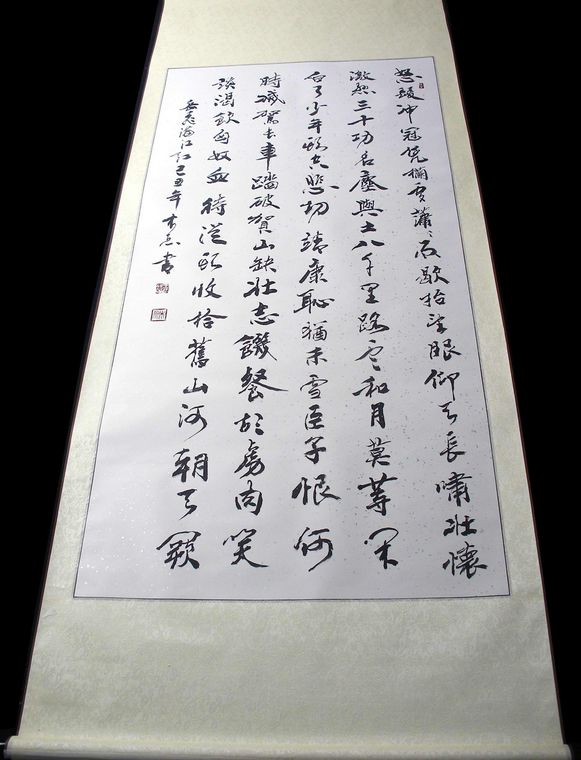 怒髮冲冠凭欄處瀟〻雨歇抬望眼仰天長嘯壯懷
激烈三十功名塵與土八千里路雲和月莫等閑
白了少年頭空悲切靖康恥猶未雪臣子恨何
時滅駕長車踏破賀山缺壯志饑餐胡虜肉笑
談渴飲匈奴血待從頭收拾舊山河朝天闕
岳飛滿江紅己丑年書